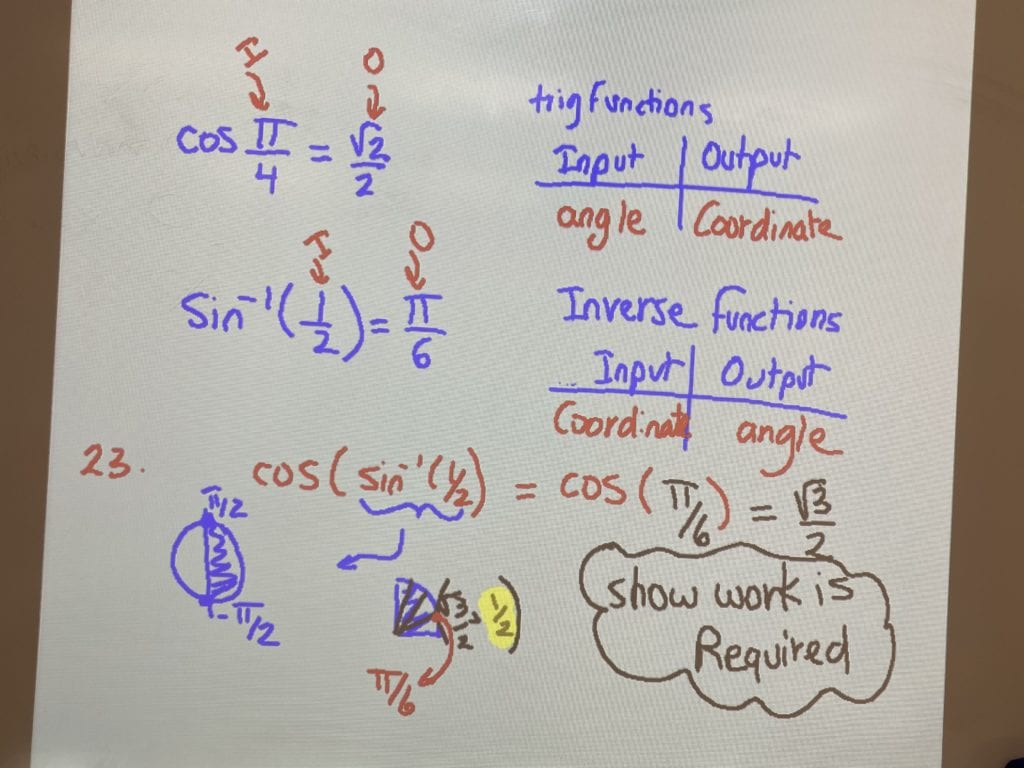 I O
cos π/4 = √2/2
trig functions
Input | Output
angle | Coordinate
I O
Sin⁻¹(1/2) = π/6
Inverse functions
Input | Output
Coordinate | angle
23. cos(sin⁻¹(1/2)) = cos(π/6) = √3/2
π/2
-π/2
(√3/2, 1/2)
π/6
show work is
Required